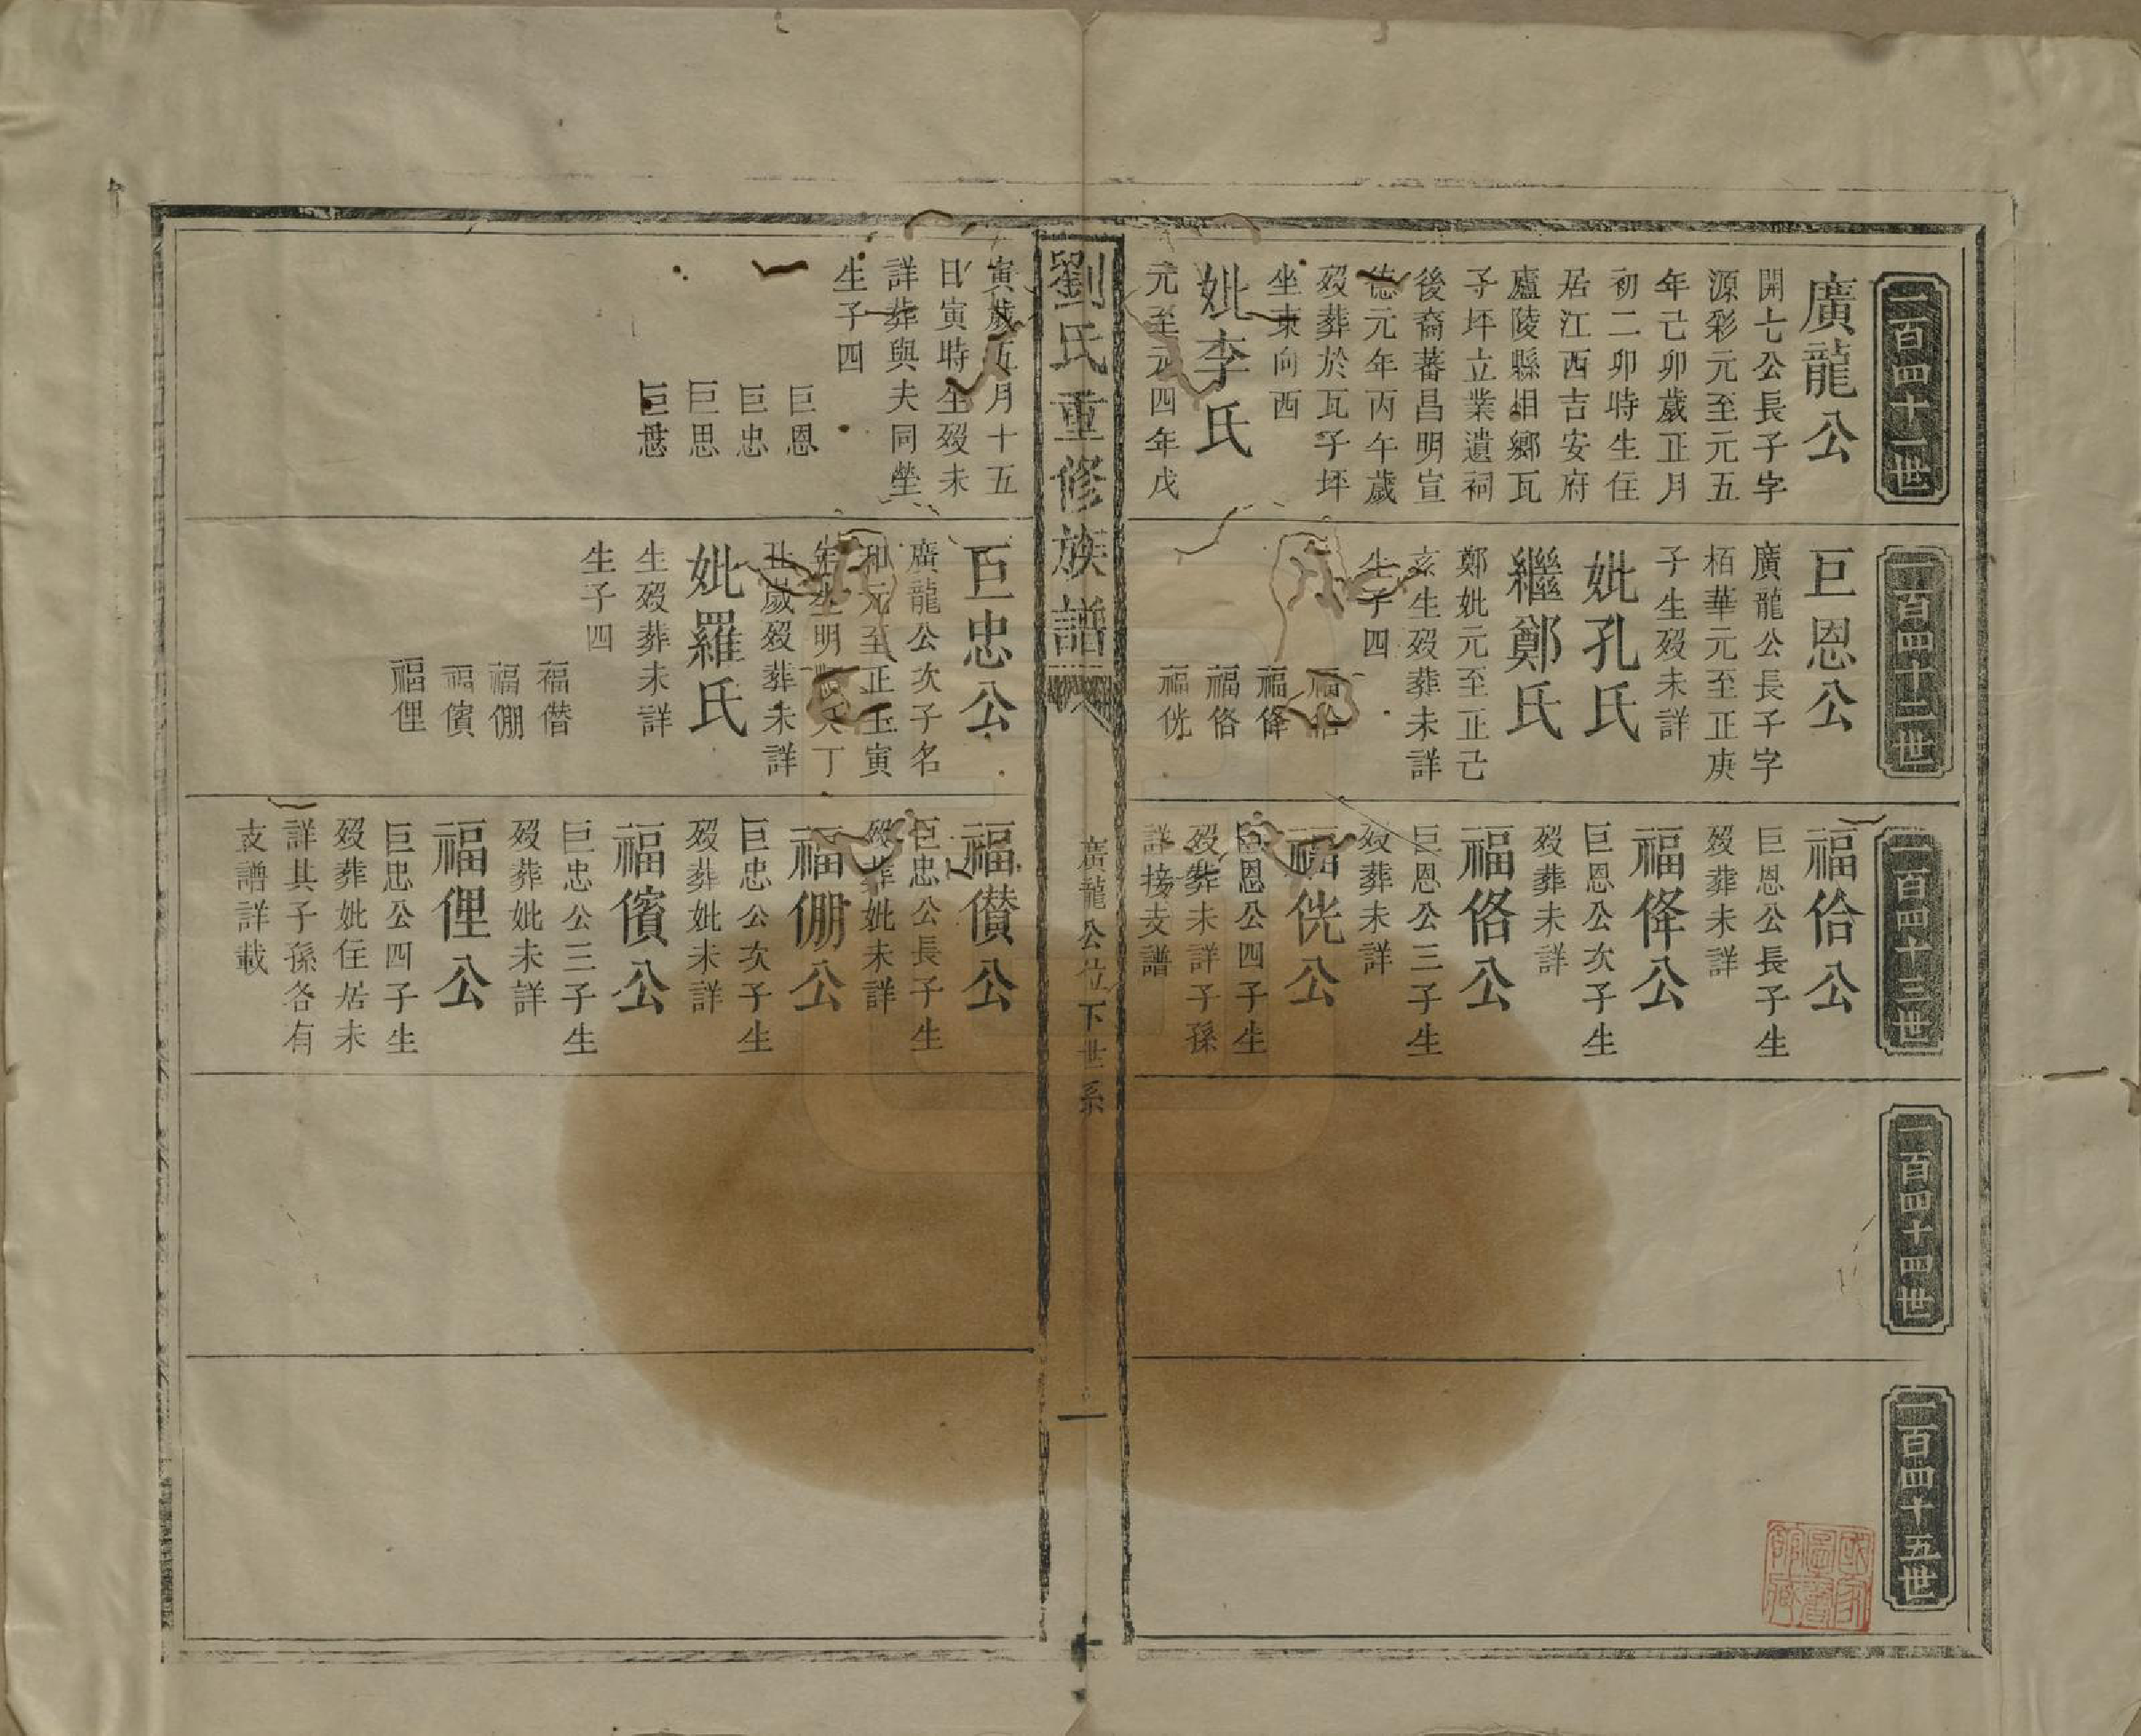 一百四十一世
廣龍公
開七公長子字
源彩元至元五
年己卯歲正月
初二卯時生住
居江西吉安府
廬陵縣相鄉瓦
子坪立業遺祠
後裔蕃昌明宣
德元年丙午歲
歿葬於瓦子坪
坐東向西
妣李氏
元至元四年戊
寅歲五月十五
日寅時生歿未
詳葬與夫同塋
生子四
巨恩
巨忠
巨思
一百四十二世
巨恩公
廣龍公長子字
栢華元至正庚
子生歿未詳
妣孔氏
繼鄭氏
鄭妣元至正己
亥生歿葬未詳
生子四
福佮
福佭
福佫
福侊
巨忠公
廣龍公次子名
和元至正壬寅
年生明 天丁
丑歲歿葬未詳
妣羅氏
生歿葬未詳
生子四
福僣
福倗
福儐
福俚
一百四十三世
福佮公
巨恩公長子生
歿葬未詳
福佭公
巨恩公次子生
歿葬未詳
福佫公
巨恩公三子生
歿葬未詳
福侊公
巨恩公四子生
歿葬未詳子孫
詳接支譜
福儹公
巨忠公長子生
歿葬妣未詳
福倗公
巨忠公次子生
歿葬妣未詳
福儐公
巨忠公三子生
歿葬妣未詳
福俚公
巨忠公四子生
歿葬妣住居未
詳其子孫各有
支譜詳載
一百四十四世
一百四十五世
劉氏重修族譜
廣龍公位下世系
一